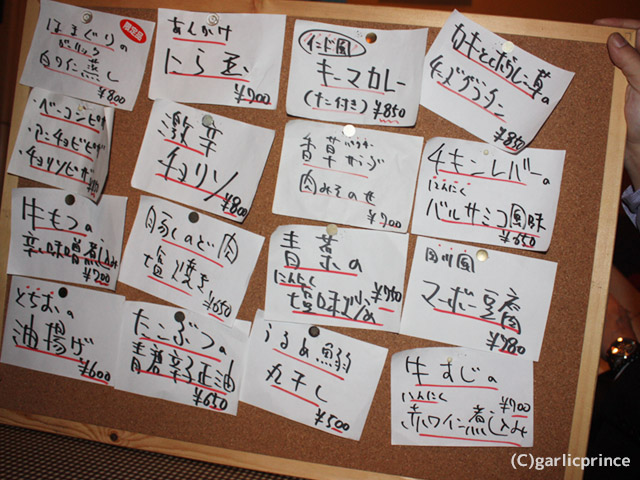 限定品
はまぐりの
ガーリック
白ワイン蒸し
¥800
あんかけ
にら玉
¥700
インド風
キーマカレー
(ナン付き) ¥850
カキとほうれん草の
チーズグラタン
¥850
・ベーコンピザ
・アンチョビピザ
・チョリソピザ
激辛
チョリソ
¥800
香草
肉みそのせ
¥700
チキンレバーの
にんにく
バルサミコ風味
¥650
牛もつの
辛味噌煮込み
¥700
豚しのど肉
塩焼き
¥650
青菜の
にんにく
塩味炒め
¥750
四川風
マーボー豆腐
¥780
とちおの
油揚げ
¥600
たこぶつの
青唐辛子正油
¥650
うるめ鰯
丸干し
¥500
牛すじの
にんにく
¥700
赤ワイン煮し込み
(C)garlicprince